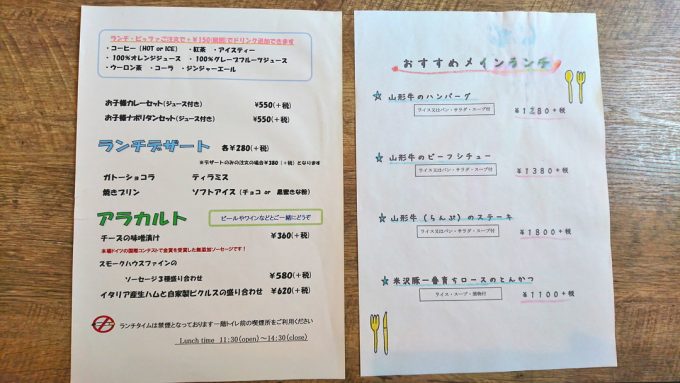 ランチ・ビュッフェご注文で+¥150(税別)でドリンク追加できます
・コーヒー (HOT or ICE) ・紅茶 ・アイスティー
・100%オレンジジュース ・100%グレープフルーツジュース
・ウーロン茶 ・コーラ ・ジンジャーエール
お子様カレーセット(ジュース付き) ¥550(+税)
お子様ナポリタンセット(ジュース付き) ¥550(+税)
ランチデザート 各¥280(+税)
*デザートのみの注文の場合¥380 (+税) となります
ガトーショコラ ティラミス
焼きプリン ソフトアイス (チョコ or 黒蜜きな粉)
アラカルト ビールやワインなどとご一緒にどうぞ
チーズの味噌漬け ¥360(+税)
本場ドイツの国際コンテストで金賞を受賞した無添加ソーセージです!
スモークハウスファインの
ソーセージ3種盛り合わせ ¥580(+税)
イタリア産生ハムと自家製ピクルスの盛り合わせ ¥620(+税)
ランチタイムは禁煙となっております一階トイレ前の喫煙所をご利用ください
Lunch time 11:30(open)~14:30(close)
おすすめメインランチ
☆山形牛のハンバーグ
ライス又はパン・サラダ・スープ付 ¥1280+税
☆山形牛のビーフシチュー
ライス又はパン・サラダ・スープ付 ¥1380+税
☆山形牛(らんぷ)のステーキ
ライス又はパン・サラダ・スープ付 ¥1800+税
☆米沢豚一番育ちロースのとんかつ
ライス・スープ・漬物付 ¥1100+税